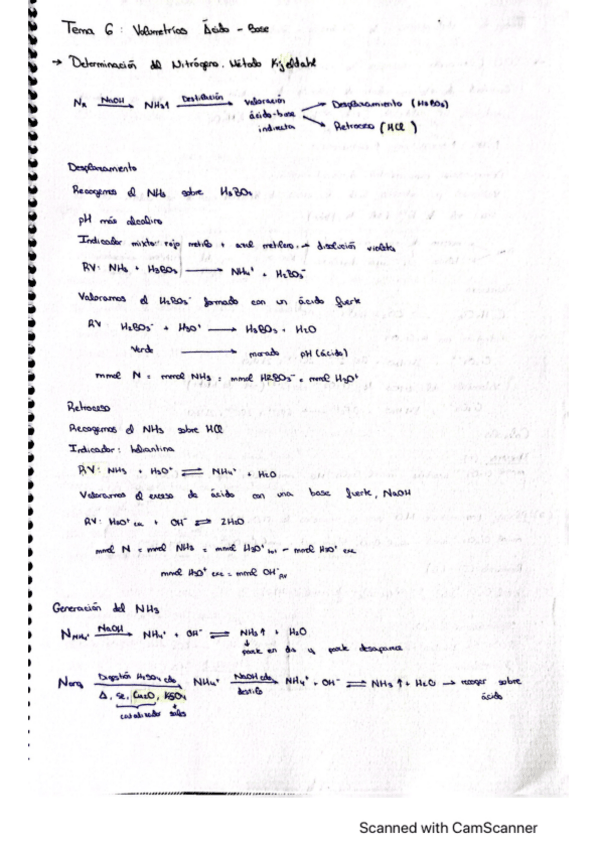 Tema 6: Volumetrías Ácido - Base
→ Determinación del Nitrógeno. Método Kjeldahl
N → NaOH → NH3↑ → Destilación → valoración ácido-base indirecta → Desplazamiento (H3BO3)
→ Retroceso (HCl)
Desplazamiento
Recogemos el NH3 sobre H3BO3
pH más alcalino
Indicador mixto: rojo metilo + azul metileno → disolución violeta
RV: NH3 + H3BO3 → NH4+ + H2BO3-
Valoramos el H2BO3- formado con un ácido fuerte
RV: H2BO3- + H3O+ → H3BO3 + H2O
Verde → morado pH (ácido)
mmol N = mmol NH3 = mmol H2BO3- = mmol H3O+
Retroceso
Recogemos el NH3 sobre HCl
Indicador: heliantina
RV: NH3 + H3O+ ⇌ NH4+ + H2O
Valoramos el exceso de ácido con una base fuerte, NaOH
RV: H3O+ exc + OH- ⇌ 2H2O
mmol N = mmol NH3 = mmol H3O+ tot - mmol H3O+ exc
mmol H3O+ exc = mmol OH- RV
Generación del NH3
N NH4+ → NaOH → NH4+ + OH- ⇌ NH3↑ + H2O
↓
parte en dis y parte desaparece
Norg → Digestión H2SO4 cdo → NH4+ → NaOH cdo → NH4+ + OH- ⇌ NH3↑ + H2O → recoger sobre ácido
destilo
Δ, Se, Cu2O, K2SO4
catalizador sales
Scanned with CamScanner